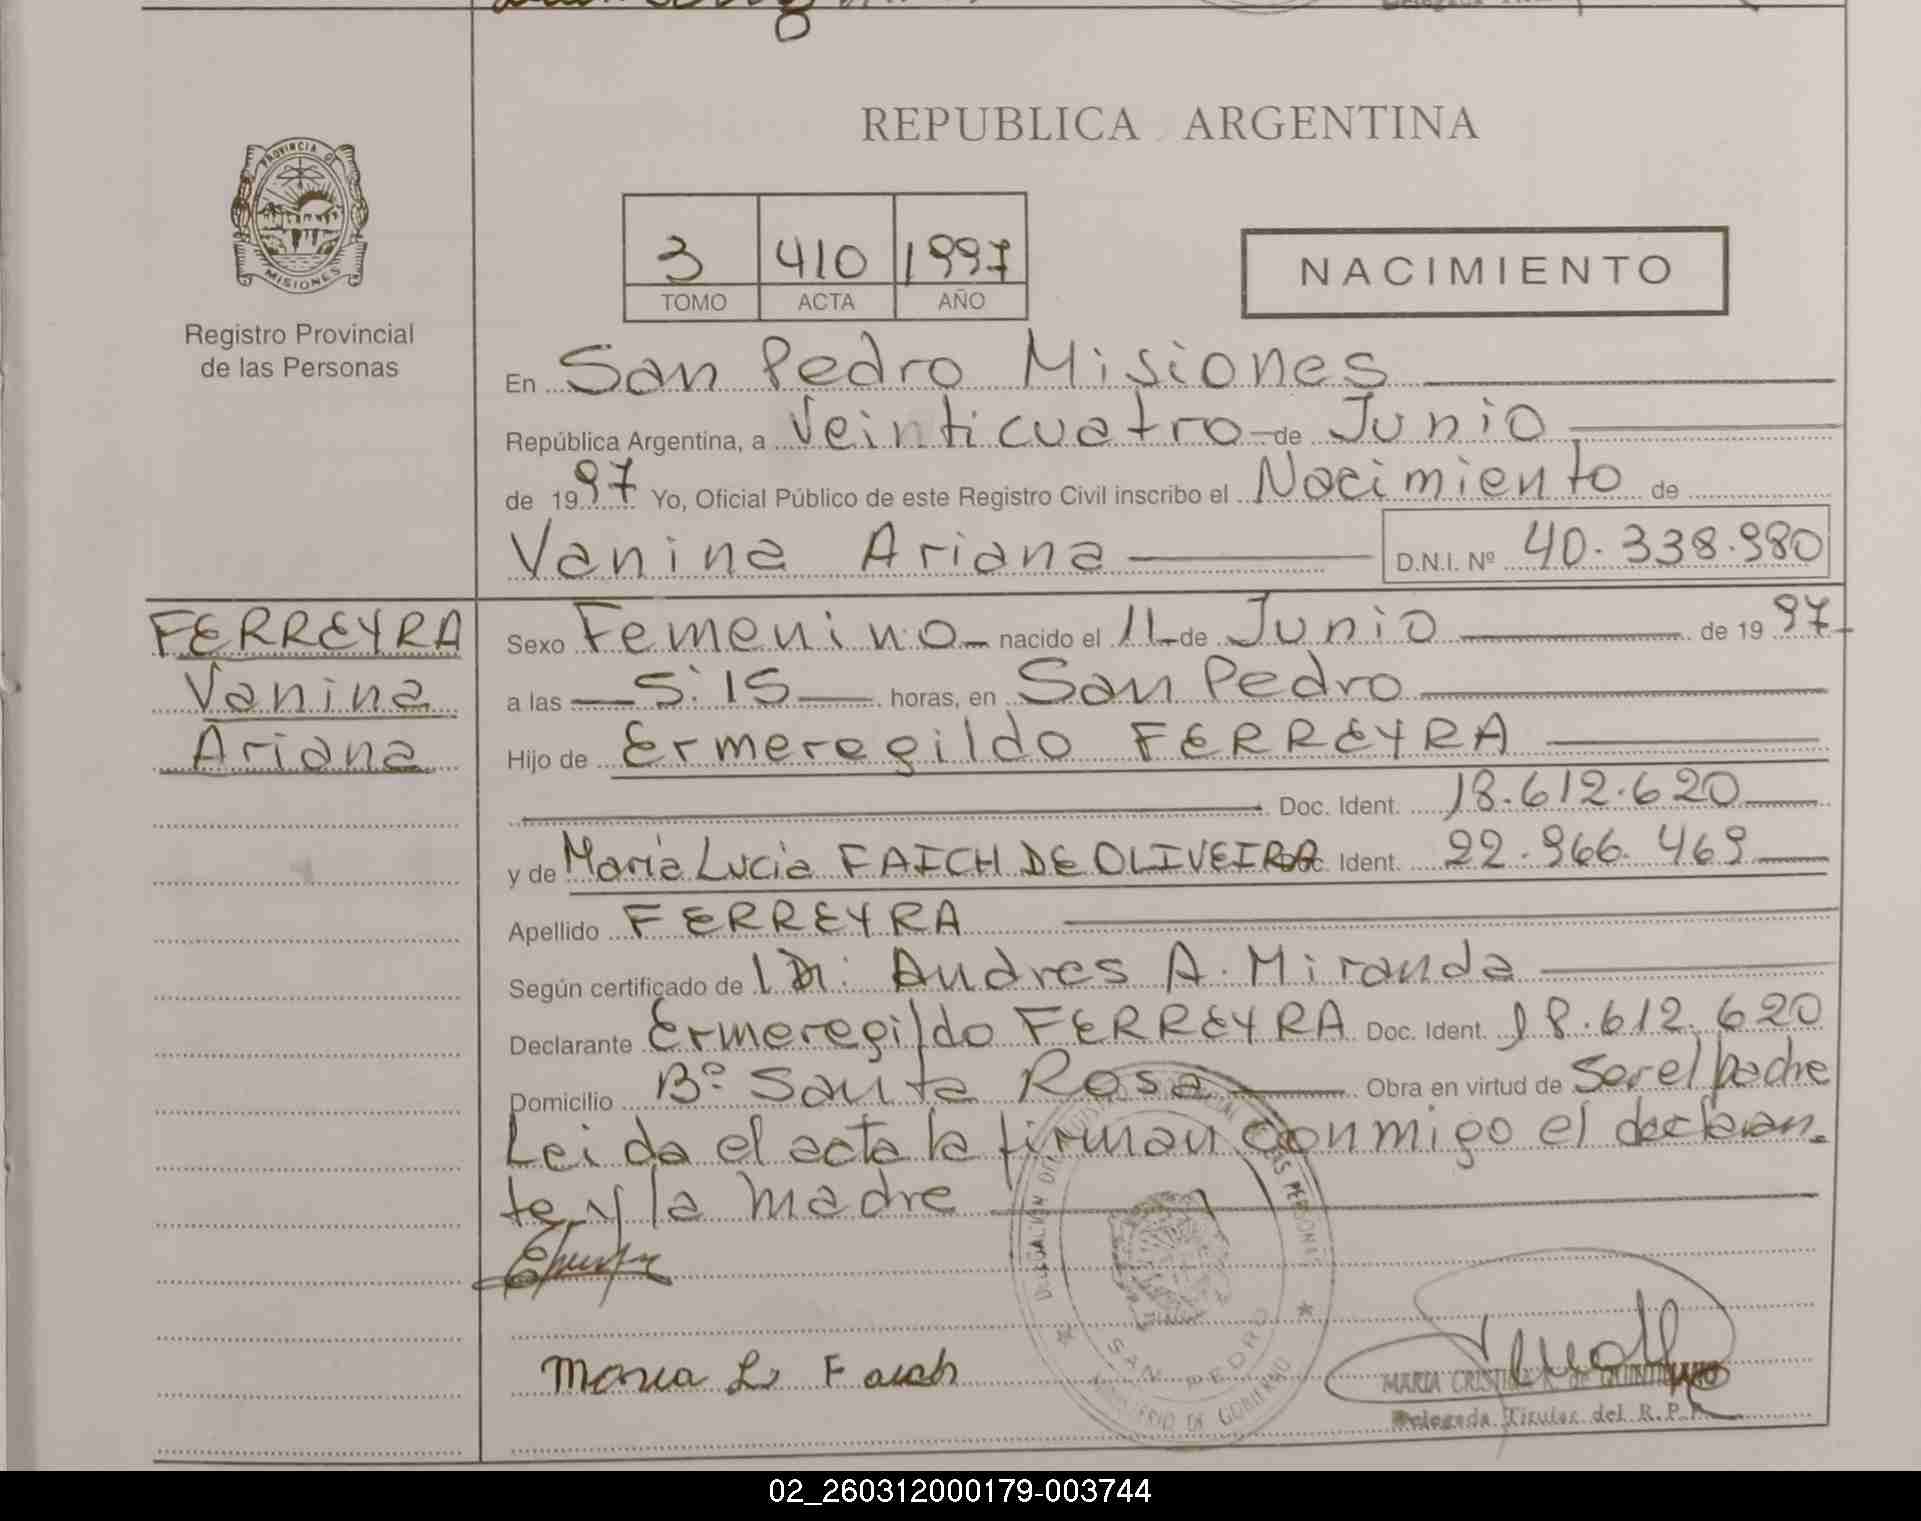 REPUBLICA ARGENTINA
PROVINCIA DE
MISIONES
Registro Provincial
de las Personas
3 410 1997
TOMO ACTA AÑO
NACIMIENTO
En San Pedro Misiones
República Argentina, a Veinticuatro de Junio
de 1997 Yo, Oficial Público de este Registro Civil inscribo el Nacimiento de
Vanina Ariana D.N.I. Nº 40.338.980
FERREYRA
Vanina
Ariana
Sexo Femenino nacido el 11 de Junio de 1997
a las 5:15 horas, en San Pedro
Hijo de Ermeregildo FERREYRA
Doc. Ident. 18.612.620
y de María Lucia FAICH DE OLIVEIRA Doc. Ident. 22.966.469
Apellido FERREYRA
Según certificado de Dr. Andres A. Miranda
Declarante Ermeregildo FERREYRA Doc. Ident. 18.612.620
Domicilio Bº Santa Rosa Obra en virtud de Ser el padre
Leida el acta la firman conmigo el declaran-
te y la madre
SAN PEDRO
MINISTERIO DE GOBIERNO
Maria L. Faich
MARIA CRISTINA
Delegada Titular del R.P.P.
02_260312000179-003744